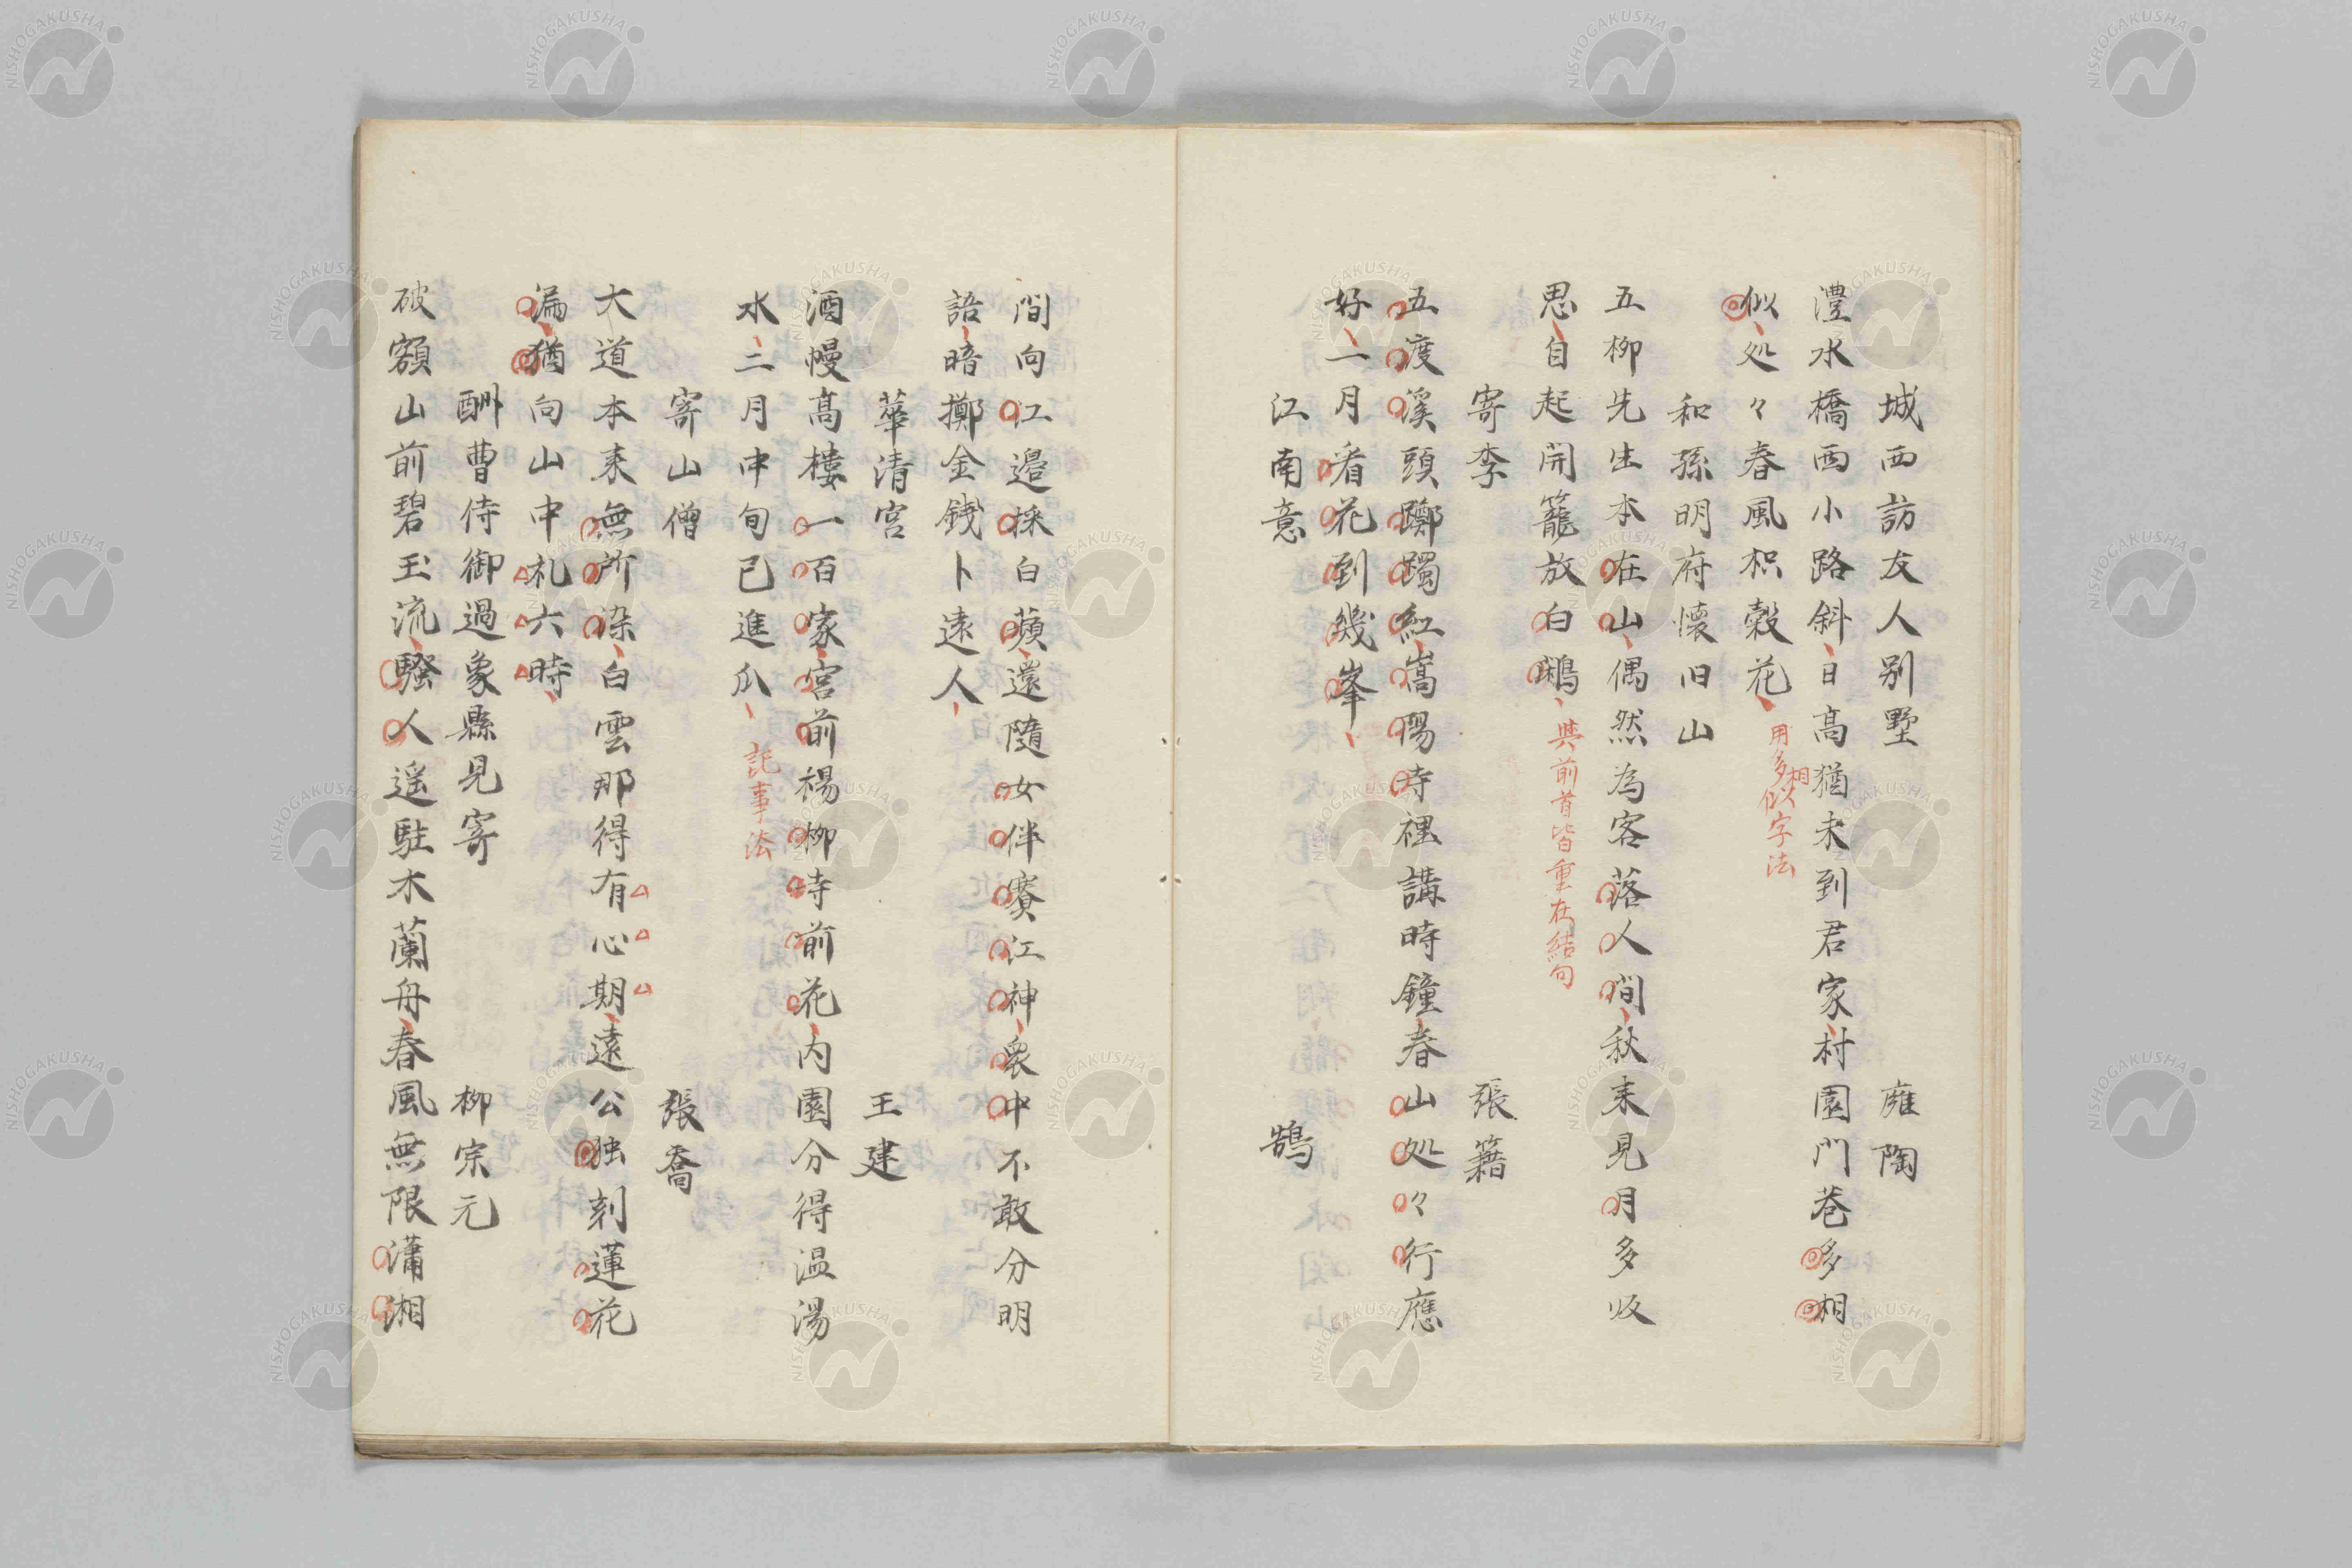 城西訪友人別墅　雍陶
澧水橋西小路斜日高猶未到君家村園門巷多相
似処々春風枳穀花
用多相似字法
和孫明府懐旧山
五柳先生本在山偶然為客落人間秋来見月多収
思自起開籠放白鷴
與前首皆重在結句
寄李　張籍
五度溪頭躑躅紅嵩陽寺裡講時鐘春山処々行應
好一月看花到幾峯
江南意　鵠
間向江邉採白蘋還隨女伴賽江神衆中不敢分明
語暗擲金錢卜遠人
華清宮　王建
酒幔高樓一百家宮前楊柳寺前花内園分得温湯
水二月中旬已進瓜
託事法
寄山僧　張喬
大道本来無所染白雲那得有心期遠公独刻蓮花
漏猶向山中札六時
酬曹侍御過象縣見寄　柳宗元
破額山前碧玉流騷人遥駐木蘭舟春風無限瀟湘
NISHOGAKUSHA